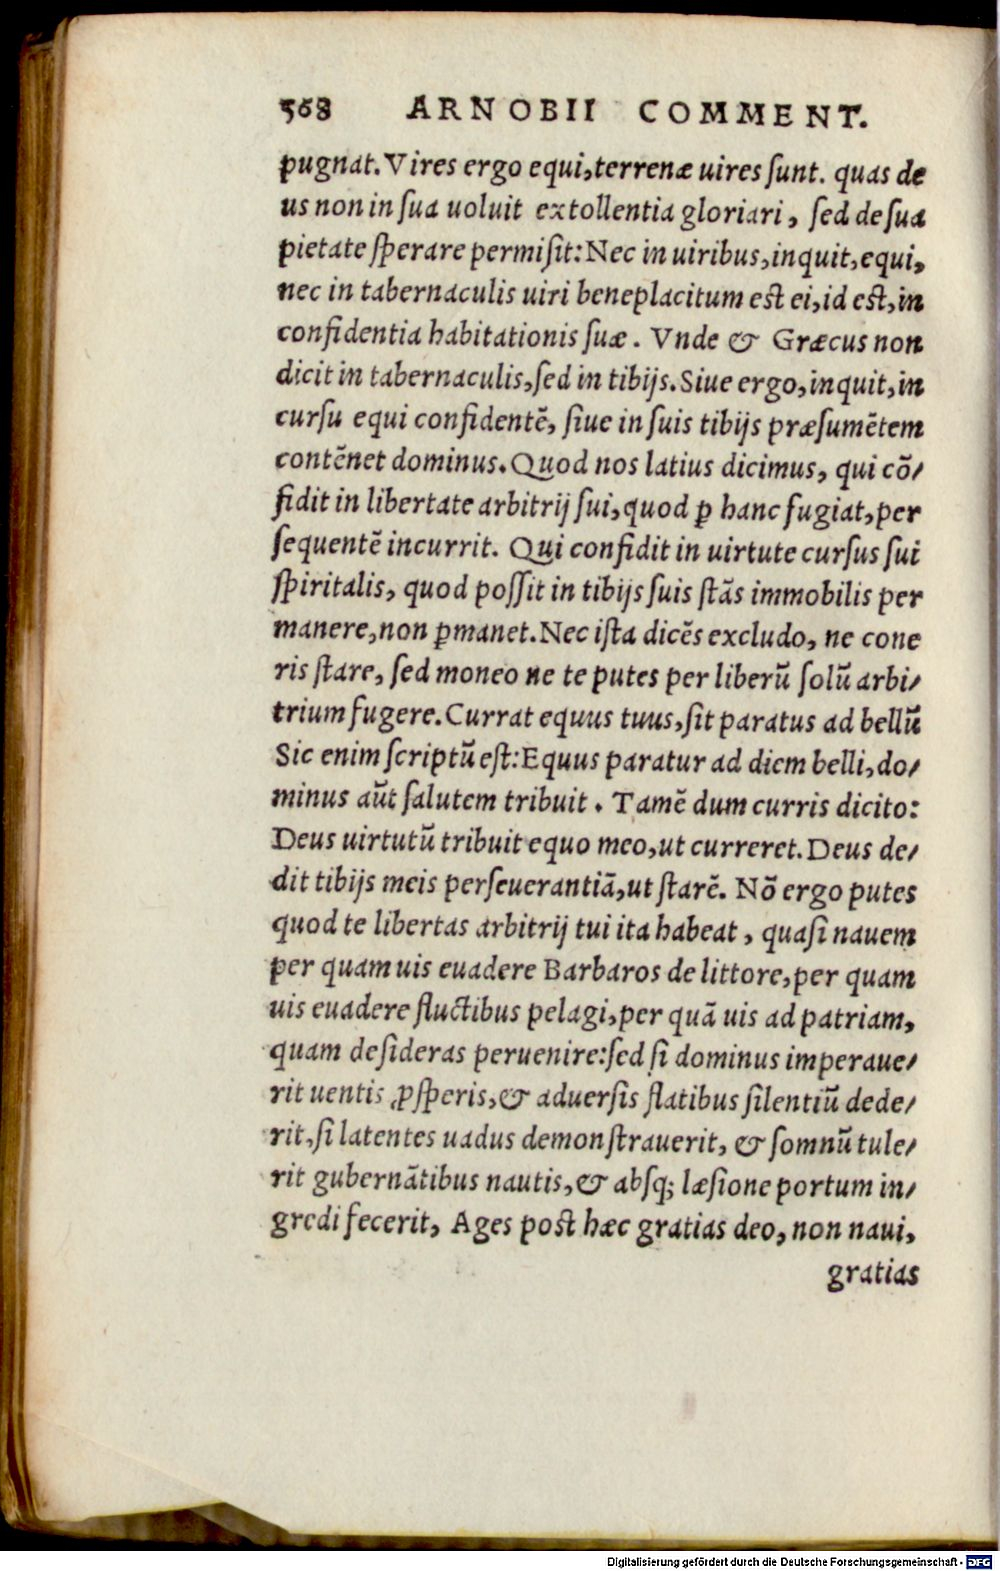 568 ARNOBII COMMENT.
pugnat. Vires ergo equi, terrenæ uires ſunt. quas de
us non in ſua uoluit extollentia gloriari, ſed de ſua
pietate ſperare permiſit: Nec in uiribus, inquit, equi,
nec in tabernaculis uiri beneplacitum eſt ei, id eſt, in
confidentia habitationis ſuæ. Vnde & Græcus non
dicit in tabernaculis, ſed in tibijs. Siue ergo, inquit, in
curſu equi confidentē, ſiue in ſuis tibijs præſumētem
contēnet dominus. Quod nos latius dicimus, qui cō/
fidit in libertate arbitrij ſui, quod ꝑ hanc fugiat, per
ſequentē incurrit. Qui confidit in uirtute curſus ſui
ſpiritalis, quod poſſit in tibijs ſuis ſtās immobilis per
manere, non ꝑmanet. Nec iſta dicēs excludo, ne cone
ris ſtare, ſed moneo ne te putes per liberū ſolū arbi/
trium fugere. Currat equus tuus, ſit paratus ad bellū
Sic enim ſcriptū eſt: Equus paratur ad diem belli, do/
minus aūt ſalutem tribuit. Tamē dum curris dicito:
Deus uirtutū tribuit equo meo, ut curreret. Deus de/
dit tibijs meis perſeuerantiā, ut ſtarē. Nō ergo putes
quod te libertas arbitrij tui ita habeat, quaſi nauem
per quam uis euadere Barbaros de littore, per quam
uis euadere fluctibus pelagi, per quā uis ad patriam,
quam deſideras peruenire: ſed ſi dominus imperaue/
rit uentis ꝓſperis, & aduerſis flatibus ſilentiū dede/
rit, ſi latentes uadus demonſtrauerit, & ſomnū tule/
rit gubernātibus nautis, & abſq; læſione portum in/
gredi fecerit, Ages poſt hæc gratias deo, non naui,
gratias
Digitalisierung gefördert durch die Deutsche Forschungsgemeinschaft - DFG